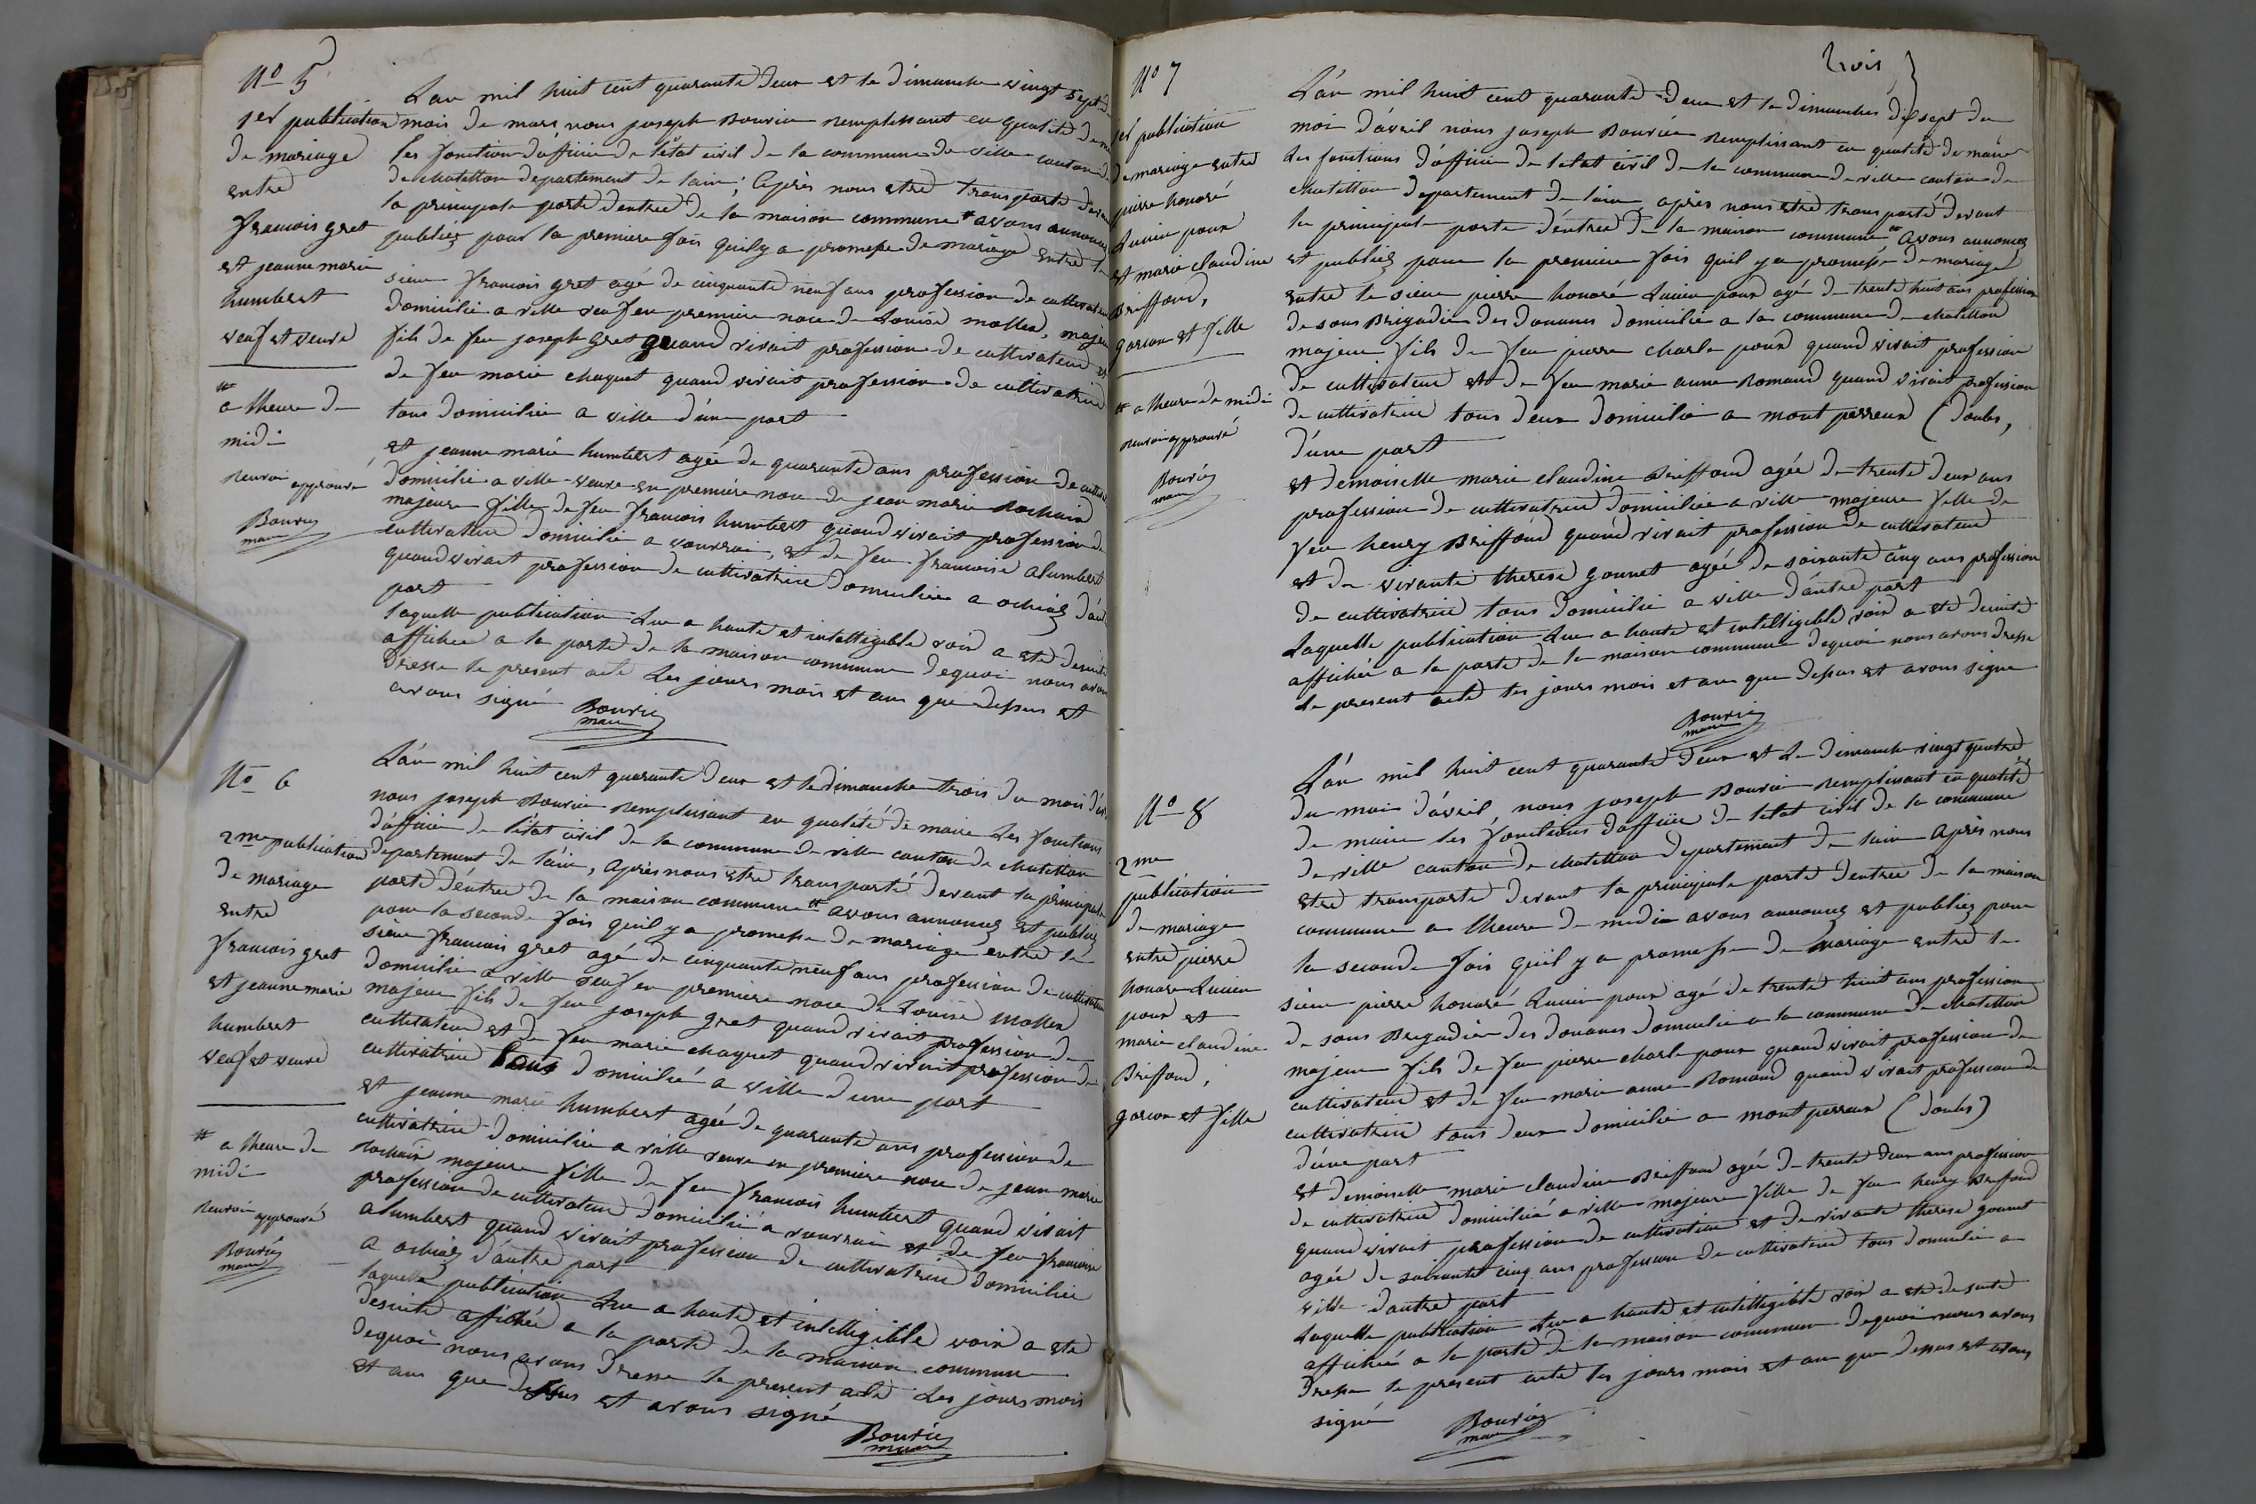 N° 5
1er publication
de mariage
entre
francois gret
et jeanne marie
humbert
veuf et veuve
# a lheure de
midi
renvoi approuvé
Bouvier
maire
Lan mil huit cent quarante deux et le dimanche vingt sept du
mois de mars nous joseph Bouvier remplissant en qualité de
les fonction d'officie de létat civil de la commune de ville canton de
de chatillon departement de lain; Après nous etre transporté devant
la principale porte dentree de la maison commune # avons annoncez
publiez pour la premiere fois quil y a promesse de mariage entre le
sieur francois gret agé de cinquante neuf ans profession de cultivateur
domicilié a ville veuf en premiere noce de Louise mollex, majeur
fils de feu joseph gret quand vivait profession de cultivateur et
de feu marie chaquet quand vivait profession de cultivatrice
tous domicilié a ville d'une part
et jeanne marie humbert agée de quarante ans profession de
domicilie a ville veuve en premiere noce de jean marie Rochaix
majeure fille de feu francois humbert quand vivait profession de
cultivateur domicilié a vouvrai, et de feu francoise alumbert
quand vivait profession de cultivatrice domiciliée a ochiaz d'autre
part
laquelle publication lue a haute et intelligible voix a ete desuite
affichée a la porte de la maison commune dequoi nous avons
dresse le present acte les jours mois et an que dessus et
avons signé
Bouvier
maire
N° 6
2me publication
de mariage
entre
francois gret
et jeanne marie
humbert
veuf et veuve
# a lheure de
midi
renvoi approuvé
Bouvier
maire
L'an mil huit cent quarante deux et le dimanche trois du mois d'avril
nous joseph Bouvier remplissant en qualité de maire les fonctions
d'officie de létat civil de la commune de ville canton de chatillon
departement de lain, après nous etre transporté devant la principale
porte d'entree de la maison commune # avons annoncez et publiez
pour la seconde fois quil y a promesse de mariage entre le
sieur francois gret agé de cinquante neuf ans profession de cultivateur
domicilié a ville veuf en premiere noce de Louise mollex
majeur fils de feu joseph gret quand vivait profession de
cultivateur et de feu marie chaquet quand vivait profession de
cultivatrice tous domicilié a ville d'une part
et jeanne marie humbert agée de quarante ans profession de
cultivatrice domicilie a ville veuve en premiere noce de jean marie
rochaix majeure fille de feu francois humbert quand vivait
profession de cultivateur domicilié a vouvrai et de feu francoise
alumbert quand vivait profession de cultivatrice domiciliée
a ochiaz d'autre part
laquelle publication lue a haute et intelligible voix a ete
desuite affichée a la porte de la maison commune
dequoi nous avons dresse le present acte les jours mois
et an que dessus et avons signé
Bouvier
maire
trois
N° 7
1er publication
de mariage entre
pierre honoré
Lucien poux
et marie claudine
Briffoud,
garcon et fille
# a lheure de midi
renvoi approuvé
Bouvier
maire
L'an mil huit cent quarante deux et le dimanches dixsept du
mois d'avril nous joseph Bouvier remplissant en qualité de maire
les fonctions d'officie de létat civil de la commune de ville canton de
chatillon departement de lain après nous etre transporté devant
la principale porte d'entree de la maison commune # avons annoncez
et publiez pour la premiere fois quil ya promesse de mariage
entre le sieur pierre honoré Lucien poux agé de trente huit ans profession
de sous Brigadier des douanes domicilié a la commune de chatillon
majeur fils de feu pierre charle poux quand vivait profession
de cultivateur et de feu marie anne Romand quand vivait profession
de cultivatrice tous deux domicilié a mont perreux (doubs,
d'une part
et demoiselle marie claudine Briffoud agée de trente deux ans
profession de cultivatrice domiciliée a ville majeure fille de
feu henry Briffoud quand vivait profession de cultivateur
et de vivante therese gonnet agée de soixante cinq ans profession
de cultivatrice tous domicilié a ville d'autre part
Laquelle publication lue a haute et intelligible voix a ete desuite
affichée a la porte de la maison commune dequoi nous avons dresse
le present acte les jours mois et an que dessus et avons signe
Bouvier
maire
N° 8
2me
publication
de mariage
entre pierre
honore Lucien
poux et
marie claudine
Briffoud,
garcon et fille
L'an mil huit cent quarante deux et le dimanche vingt quatre
du mois d'avril, nous joseph Bouvier remplissant en qualité
de maire les fonctions d'officie de létat civil de la commune
de ville canton de chatillon departement de lain Après nous
etre transporté devant la principale porte dentree de la maison
commune a lheure de midi avons annoncez et publiez pour
la seconde fois quil y a promesse de mariage entre le
sieur pierre honoré Lucien poux agé de trente huit ans profession
de sous Brigadier des douanes domicilié a la commune de chatillon
majeur fils de feu pierre charle poux quand vivait profession de
cultivateur et de feu marie anne Romand quand vivait profession de
cultivatrice tous deux domicilié a mont perreux (doubs)
d'une part
et demoiselle marie claudine Briffoud agée de trente deux ans profession
de cultivatrice domiciliée a ville majeure fille de feu henry Briffoud
quand vivait profession de cultivateur et de vivante therese gonnet
agée de soixante cinq ans profession de cultivatrice tous domicilié a
ville d'autre part
Laquelle publication lue a haute et intelligible voix a ete de suite
affichée a la porte de la maison commune dequoi nous avons
dresse le present acte les jours mois et an que dessus et avons
signé
Bouvier
maire